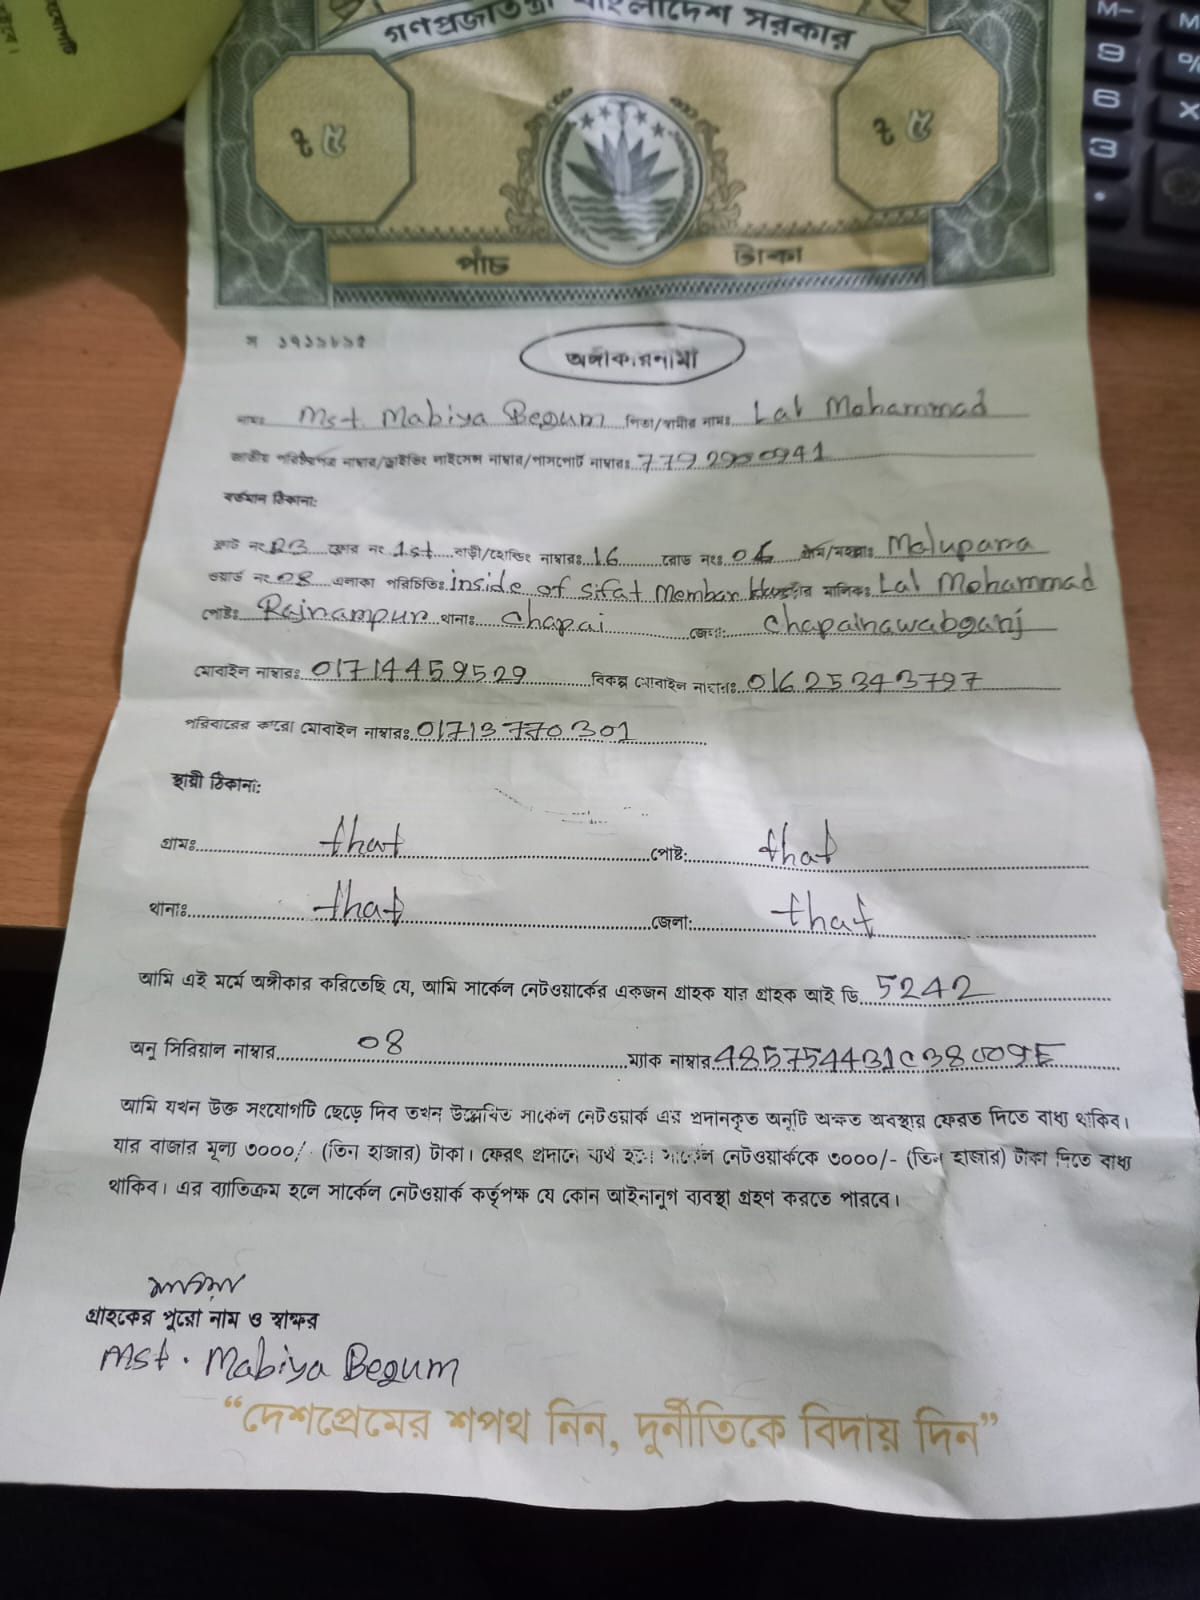 গণপ্রজাতন্ত্রী বাংলাদেশ সরকার
৳ ৫ ৳ ৫
পাঁচ টাকা
অঙ্গীকারনামা
নামঃ Mst. Mabiya Begum পিতা/স্বামীর নামঃ Lal Mohammad
জাতীয় পরিচয়পত্র নাম্বার/ড্রাইভিং লাইসেন্স নাম্বার/পাসপোর্ট নাম্বারঃ
বর্তমান ঠিকানা:
ফ্লাট নং B3 ফ্লোর নং 1st বাড়ী/হোল্ডিং নাম্বারঃ 16 রোড নংঃ 06 গ্রাম/মহল্লাঃ Malupara
ওয়ার্ড নং 08 এলাকা পরিচিতিঃ inside of Sifat Membar মালিকঃ Lal Mohammad
পোষ্টঃ Rajnampur থানাঃ Chapai জেলা: Chapainawabganj
মোবাইল নাম্বারঃ 01714459529 বিকল্প মোবাইল নাম্বারঃ 01625343797
পরিবারের কারো মোবাইল নাম্বারঃ 01713770301
স্থায়ী ঠিকানা:
গ্রামঃ that পোষ্ট: that
থানাঃ that জেলা: that
আমি এই মর্মে অঙ্গীকার করিতেছি যে, আমি সার্কেল নেটওয়ার্কের একজন গ্রাহক যার গ্রাহক আই ডি 5242
অনু সিরিয়াল নাম্বার 08 ম্যাক নাম্বার
আমি যখন উক্ত সংযোগটি ছেড়ে দিব তখন উল্লেখিত সার্কেল নেটওয়ার্ক এর প্রদানকৃত অনুটি অক্ষত অবস্থার ফেরত দিতে বাধ্য থাকিব।
যার বাজার মূল্য ৩০০০/- (তিন হাজার) টাকা। ফেরৎ প্রদানে ব্যর্থ হলে সার্কেল নেটওয়ার্ককে ৩০০০/- (তিন হাজার) টাকা দিতে বাধ্য
থাকিব। এর ব্যাতিক্রম হলে সার্কেল নেটওয়ার্ক কর্তৃপক্ষ যে কোন আইনানুগ ব্যবস্থা গ্রহণ করতে পারবে।
গ্রাহকের পুরো নাম ও স্বাক্ষর
Mst. Mabiya Begum
“দেশপ্রেমের শপথ নিন, দুর্নীতিকে বিদায় দিন”
M-
9
6
3
M
%
X